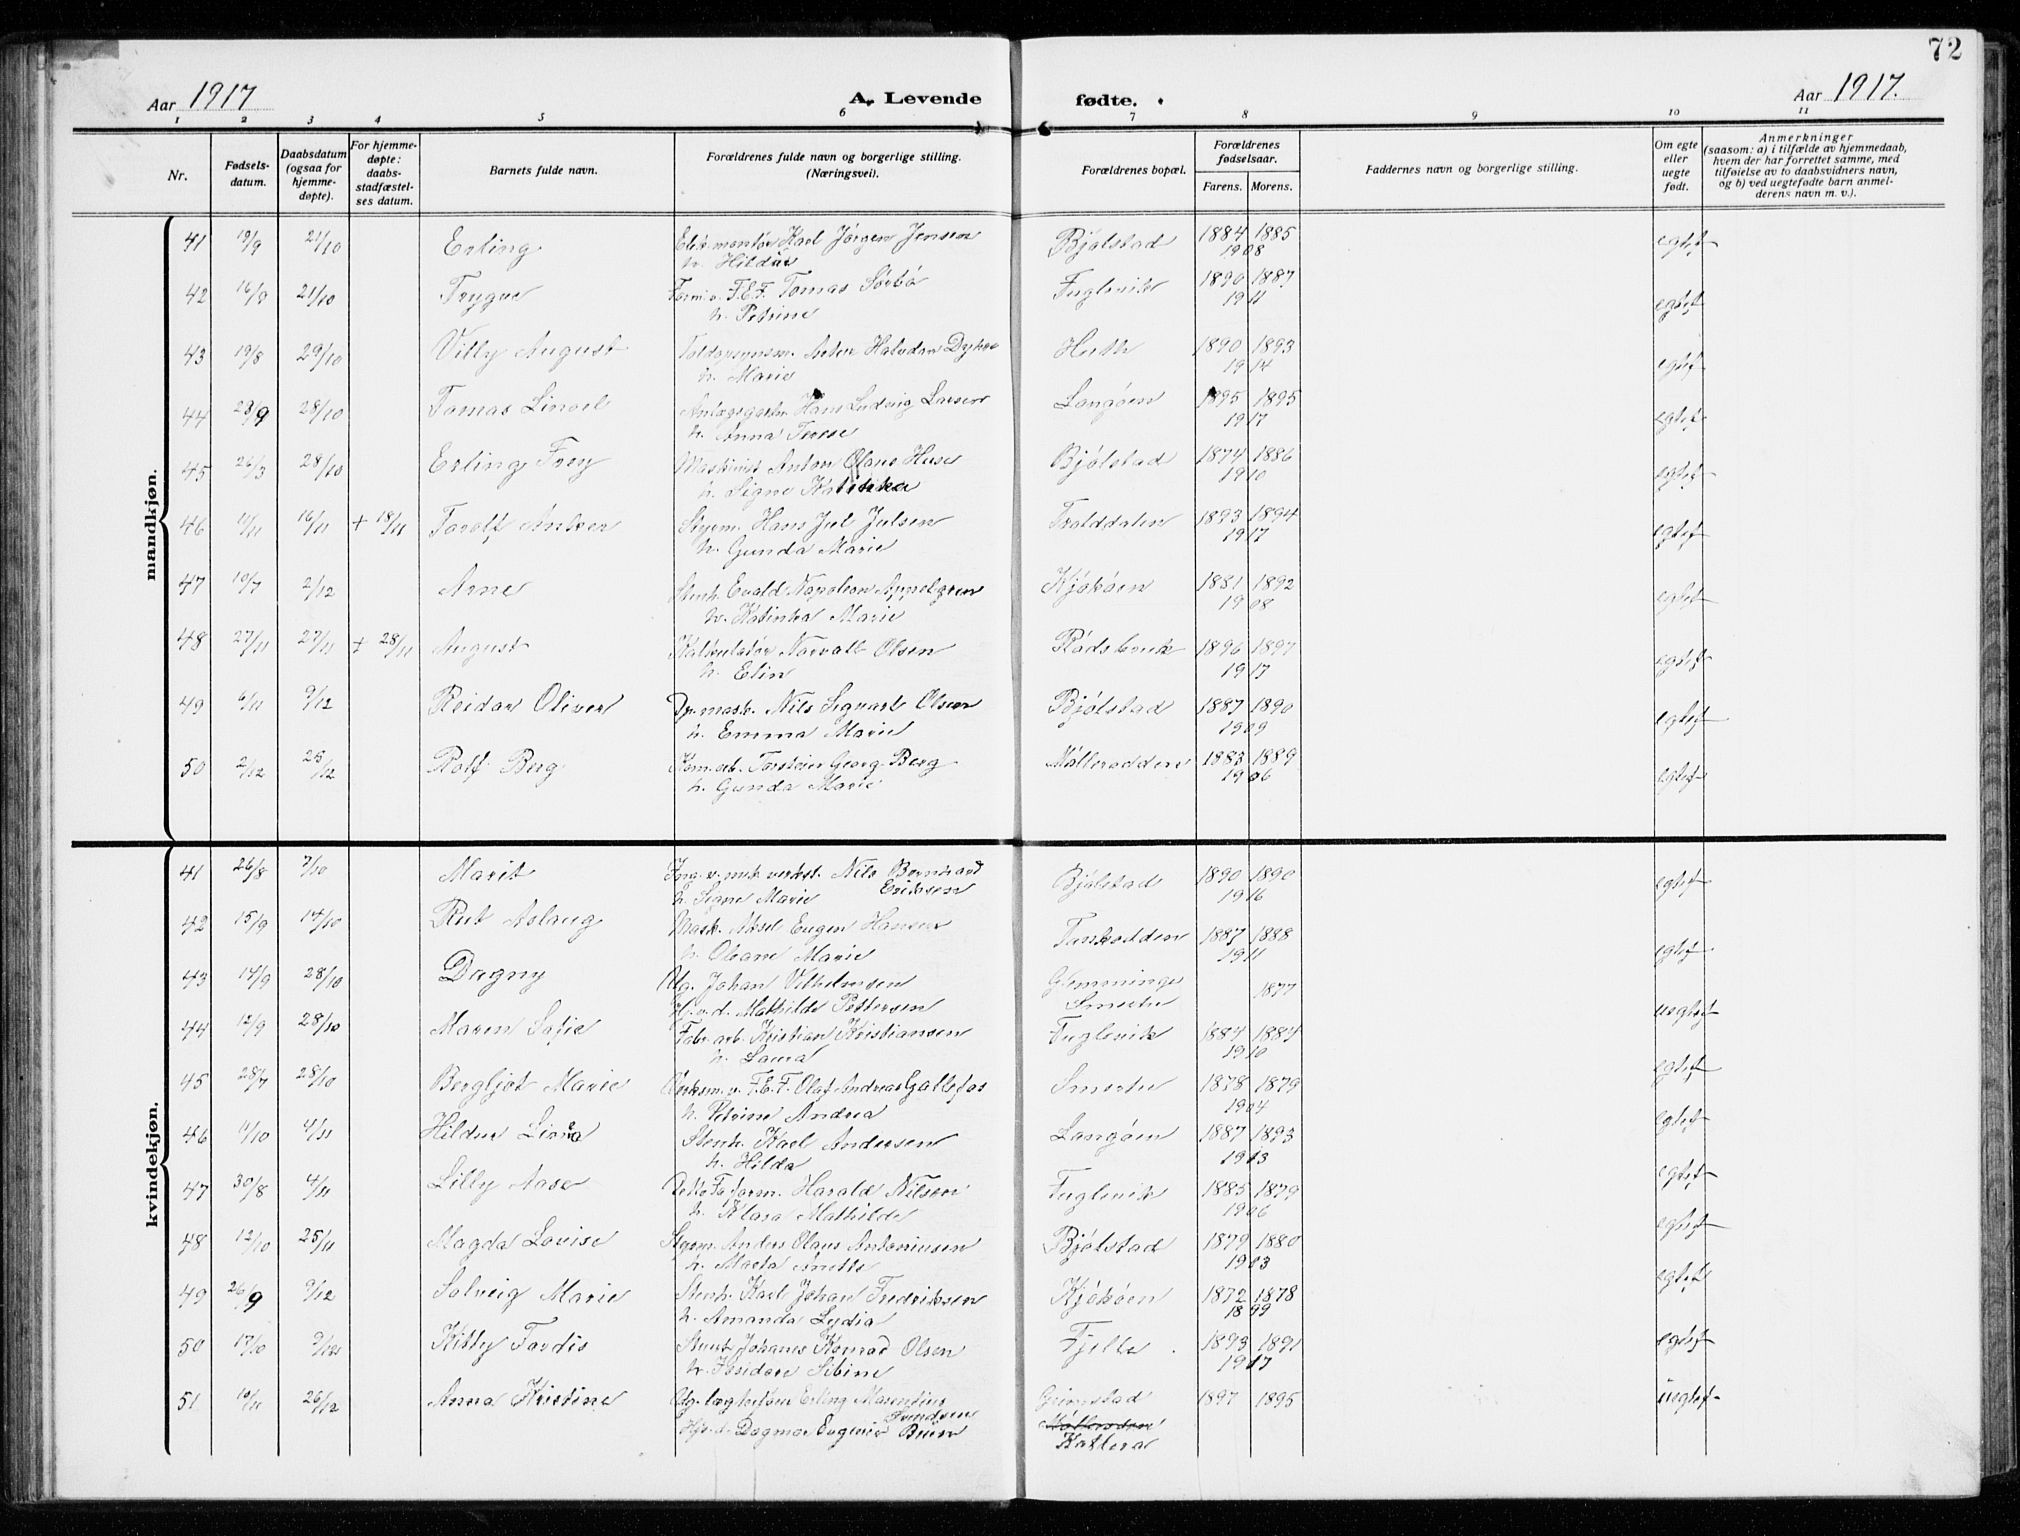 72
Aar 1917
A. Levende fødte.
Aar 1917.
1 2 3 4 5 6 7 8 9 10 11
Nr.
Fødsels-
datum.
Daabsdatum
(ogsaa for
hjemme-
døpte).
For hjemme-
døpte:
daabs-
stadfæstel-
ses datum.
Barnets fulde navn.
Forældrenes fulde navn og borgerlige stilling.
(Næringsvei).
Forældrenes bopæl.
Forældrenes
fødselsaar.
Farens. Morens.
Faddernes navn og borgerlige stilling.
Om egte
eller
uegte
født.
Anmerkninger
(saasom: a) i tilfælde av hjemmedaab,
hvem der har forrettet samme, med
tilføielse av to daabsvidners navn,
og b) ved uegtefødte barn anmel-
derens navn m. v.).
mandkjøn.
41 19/9 21/10 Erling Karl Jørgen Jensen Bjølstad 1884 1885 egtef
h. Hildur 1908
42 16/9 21/10 Trygve Form. v. F.E.F. Tomas Sørbø Fuglevik 1890 1887 egtef
h. Petrine 1911
43 19/8 29/10 Villy August Halvdan 1890 1893 egtef
h. Marie 1914
44 23/9 28/10 Tomas Hans Ludvig Larsen Langøen 1895 1895 egtef
h. Anna Terese 1917
45 26/3 28/10 Erling Frey Maskinist Anton Olaus Huse Bjølstad 1874 1886 egtef
h. Signe Katinka 1910
46 11/11 16/11 + 18/11 Torolf Anker Styrm. Hans Jul Julsen Tralddalen 1893 1894 egtef
h. Gunda Marie 1917
47 10/7 2/12 Arne Stenh. Evald Napoleon Appelgren Kjøkøen 1881 1892 egtef
h. Katinka Marie 1908
48 27/11 27/11 + 28/11 August Kalkulatør Norvald Olsen Rødsbruk 1896 1897 egtef
h. Elin 1917
49 6/11 9/12 Reidar Oliver Nils Sigvart Olsen Bjølstad 1887 1890 egtef
h. Emma Marie 1909
50 2/12 Rolf Berg Kom. arb. Torstein Georg Berg Møllerodden 1883 1889 egtef
h. Gunda Marie 1906
kvindekjøn.
41 26/8 7/10 Marit Ing. v. mek verkst. Nils Bernhard Bjølstad 1890 1890 egtef
Eriksen
h. Signe Marie 1916
42 15/9 14/10 Rut Aslaug Mask. Aksel Eugen Hansen 1887 1888 egtef
h. Oleane Marie 1911
43 14/9 28/10 Dagny Johan Vilhelmsen Glemminge 1877 uegtef
P. v. d. Mathilde Pettersen Smertu
44 12/9 28/10 Maren Sofie Fabr. arb. Kristian Kristiansen Fuglevik 1884 1884 egtef
h. Laura 1910
45 28/7 28/10 Bergljot Marie Verksm. v. F.E.F. Olaf Andreas Gallefos Smertu 1878 1879 egtef
h. Petrine Andrea 1904
46 11/10 4/11 Hildur Stenh. Karl Andersen Langøen 1887 1893 egtef
h. Hilda 1913
47 30/8 4/11 Lilly Aase Harald Nilsen Fuglevik 1885 1879 egtef
h. Klara Mathilde 1906
48 12/10 25/11 Magda Lovise Styrm. Anders Olaus Antoniusen Bjølstad 1879 1880 egtef
h. Marta Anette 1903
49 26/9 9/12 Solveig Marie Stenh. Karl Johan Fredriksen Kjøkøen 1872 1878 egtef
h. Amanda Lydia 1899
50 17/10 9/12 Kitty Tordis Stenh. Johanes Konrad Olsen Fjelle 1893 1891 egtef
h. Josidore Sibine 1917
51 10/11 26/12 Anna Kristine Erling Marentius Grimstad 1897 1895 uegtef
Dagmar Eugenie
Kallera